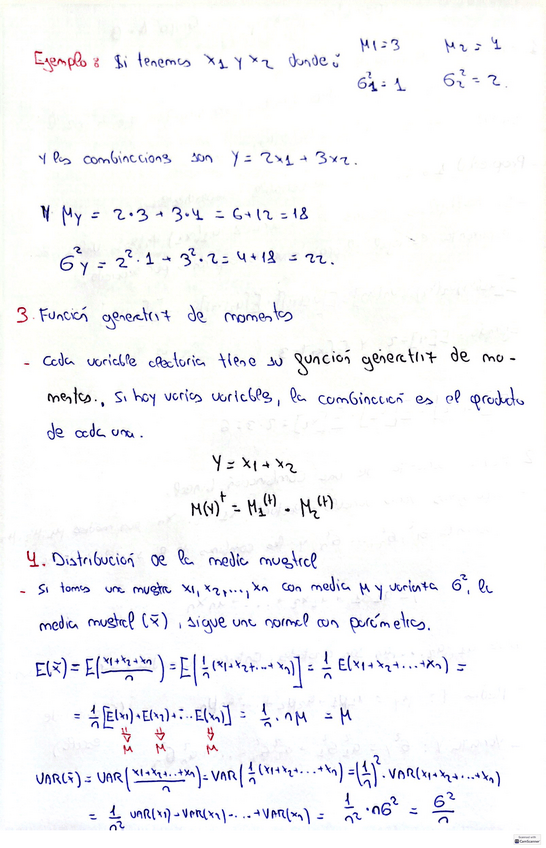 Ejemplo: Si tenemos x1 y x2 donde: M1=3 M2=4
σ²1=1 σ²2=2.
y las combinaccions son Y=2x1+3x2.
y My = 2·3+3·4=6+12=18
σ²y = 2²·1+3²·2=4+18=22.
3. Función generatriz de momentos
- Cada variable aleatoria tiene su función generatriz de mo-
mentos., si hay varias variables, la combinacción es el producto
de cada una.
Y = x1 + x2
M(y)^t = M1^(t) · M2^(t)
4. Distribución de la media muestral
- Si tomas una muestra x1, x2, ..., xn con media M y varianza σ², la
media muestral (x̄), sigue una normal con parámetros.
E(x̄) = E((x1+x2+xn)/n) = E[1/n (x1+x2+...+xn)] = 1/n E(x1+x2+...+xn) =
= 1/n [E(x1)+E(x2)+...E(xn)] = 1/n · nM = M
⇓ ⇓ ⇓
M M M
VAR(x̄) = VAR((x1+x2+...+xn)/n) = VAR(1/n (x1+x2+...+xn) = (1/n)² · VAR(x1+x2+...+xn)
= 1/n² VAR(x1)+VAR(x2)+...+VAR(xn) = 1/n² · nσ² = σ²/n
Scanned with
CamScanner